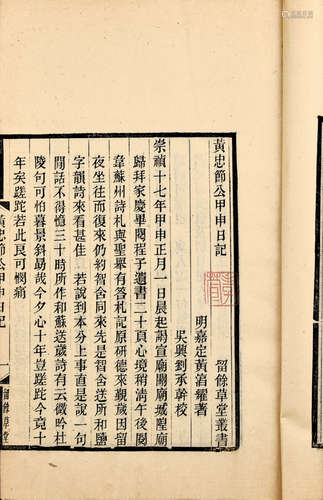 黃忠節公甲申日記
留餘草堂叢書
明嘉定黃淳耀著
吳興劉承幹校
崇禎十七年甲申正月一日晨起謁宣廟關廟城隍廟
歸拜家慶畢閱程子遺書二十頁心境稍清午後閱
韋蘇州詩札與聖舉有答札記原研德來觀歲因留
夜坐往而復仍約智舍同來先是智舍送所和鹽
字韻詩來看甚佳 若說到本分上事直是說一句
閒話不得憶三十時所作和蘇送歲詩有云微吟杜
陵句可怕暮景斜勗哉今夕心十年豈蹉跎今竟十
年矣蹉跎若此良可憫痛
黃忠節公甲申日記
留餘草堂